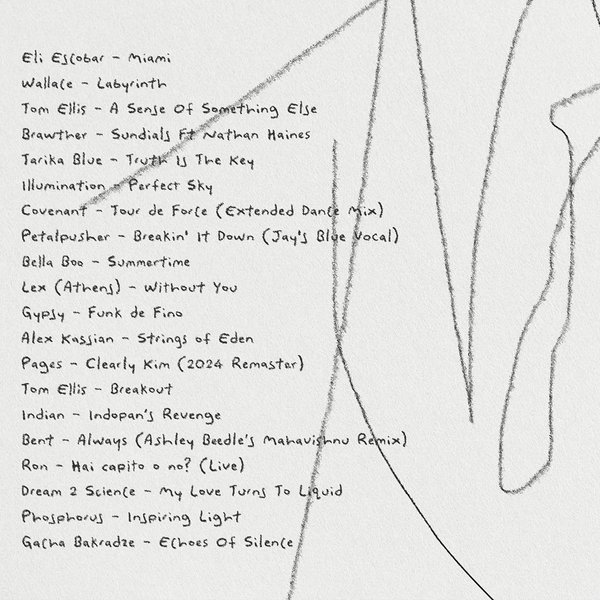 Eli Escobar - Miami
Wallace - Labyrinth
Tom Ellis - A Sense Of Something Else
Brawther - Sundials Ft Nathan Haines
Tarika Blue - Truth Is The Key
Illumination - Perfect Sky
Covenant - Tour de Force (Extended Dance Mix)
Petalpusher - Breakin' It Down (Jay's Blue Vocal)
Bella Boo - Summertime
Lex (Athens) - Without You
Gypsy - Funk de Fino
Alex Kassian - Strings of Eden
Pages - Clearly Kim (2024 Remaster)
Tom Ellis - Breakout
Indian - Indopan's Revenge
Bent - Always (Ashley Beedle's Mahavishnu Remix)
Ron - Hai capito o no? (Live)
Dream 2 Science - My Love Turns To Liquid
Phosphorus - Inspiring Light
Gacha Bakradze - Echoes Of Silence